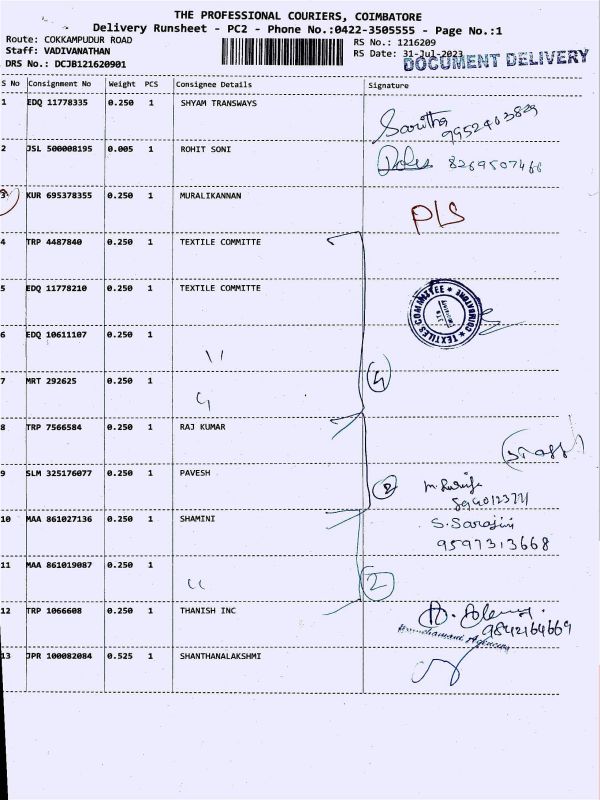 THE PROFESSIONAL COURIERS, COIMBATORE
Delivery Runsheet - PC2 - Phone No.:0422-3505555 - Page No.:1
Route: COKKAMPUDUR ROAD
RS No.: 1216209
Staff: VADIVANATHAN
RS Date: 31-Jul-2023
DOCUMENT DELIVERY
DRS No.: DCJB121620901
S No Consignment No Weight PCS Consignee Details Signature
1 EDQ 11778335 0.250 1 SHYAM TRANSWAYS
Saritha
9952403829
2 JSL 500008195 0.005 1 ROHIT SONI
8269507466
3 KUR 695378355 0.250 1 MURALIKANNAN
PLS
4 TRP 4487840 0.250 1 TEXTILE COMMITTE
5 EDQ 11778210 0.250 1 TEXTILE COMMITTE
TEXTILES COMMITTEE * COIMBATORE *
6 EDQ 10611107 0.250 1
7 MRT 292625 0.250 1
4
8 TRP 7566584 0.250 1 RAJ KUMAR
9 SLM 325176077 0.250 1 PAVESH
2
10 MAA 861027136 0.250 1 SHAMINI
S. Sarojini
9597313668
11 MAA 861019087 0.250 1
2
12 TRP 1066608 0.250 1 THANISH INC
9842164669
13 JPR 100082084 0.525 1 SHANTHANALAKSHMI